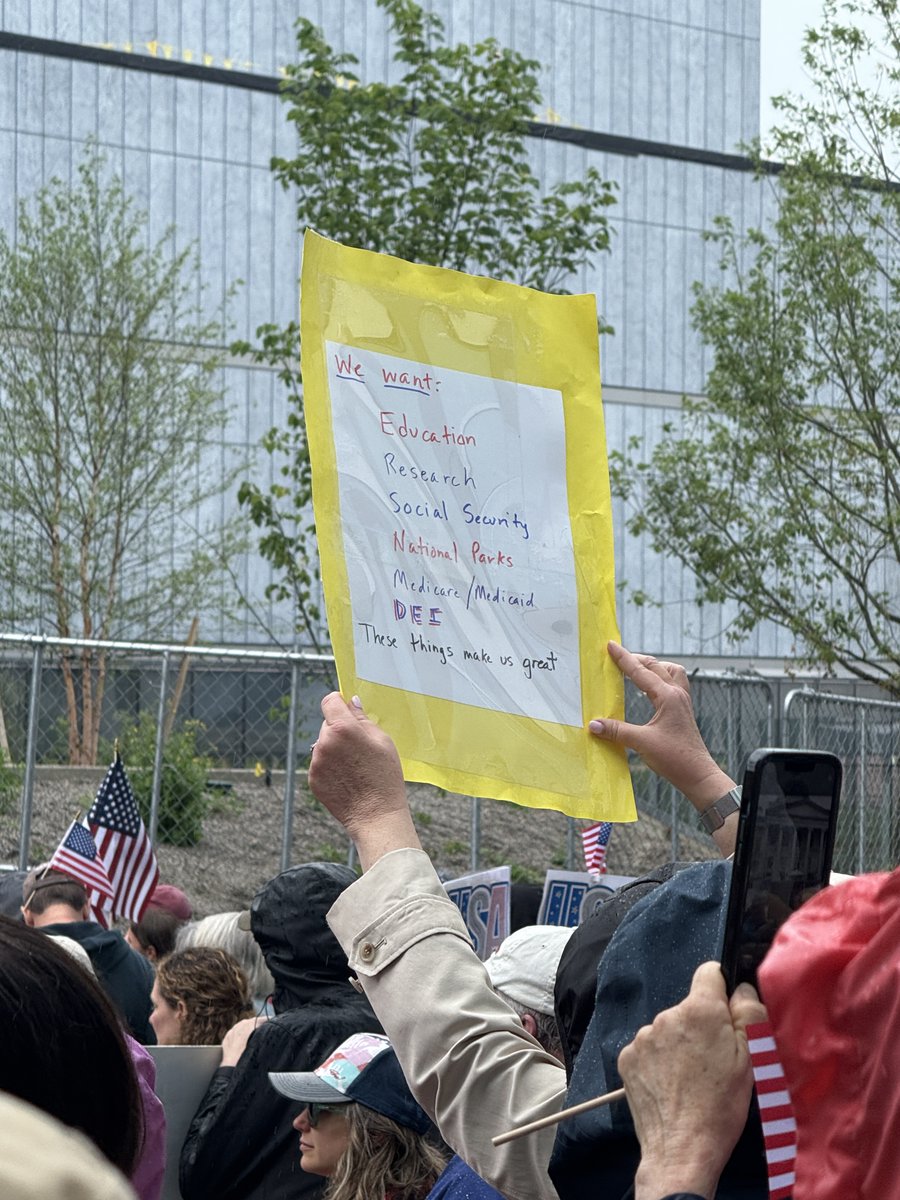 We want:
Education
Research
Social Security
National Parks
Medicare/Medicaid
DEI
These things make us great
USA